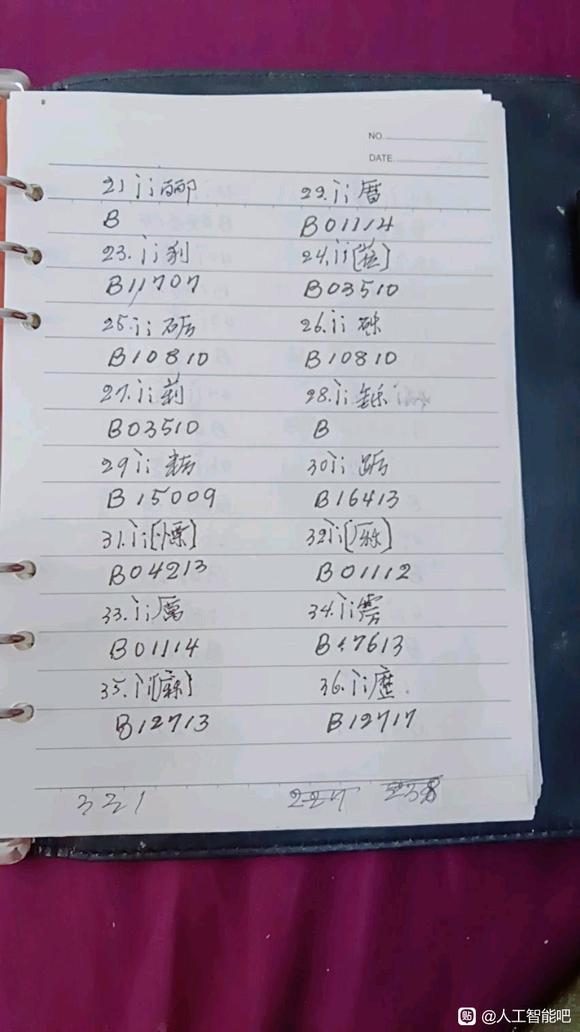 NO.
DATE.
21 ì; 郦 22. ì; 曆
B B01114
23. ì; 剓 24. ì;
B11707 B03510
25. ì; 砺 26. ì; 砾
B10810 B10810
27. ì; 莉 28. ì;
B03510 B
29 ì; 30 ì;
B15009 B16413
31. ì; [慄] 32 ì;
B04213 B01112
33. ì; 厲 34. ì;
B01114 B17613
35. ì; 36. ì; 歷
B12713 B12717
321 227 238
@人工智能吧